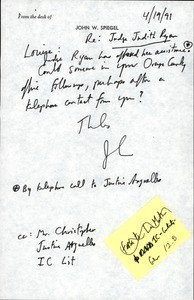 From the desk of
JOHN W. SPIEGEL
4/19/91
Re: Judge Judith Ryan
Louise:
Judge Ryan has offered her assistance.
Could someone in your Orange County
office followup, perhaps after a
telephone contact from you?
Thanks
* By telephone call to Justice Arguelles
cc: Mr. Christopher
Justice Arguelles
IC Lit